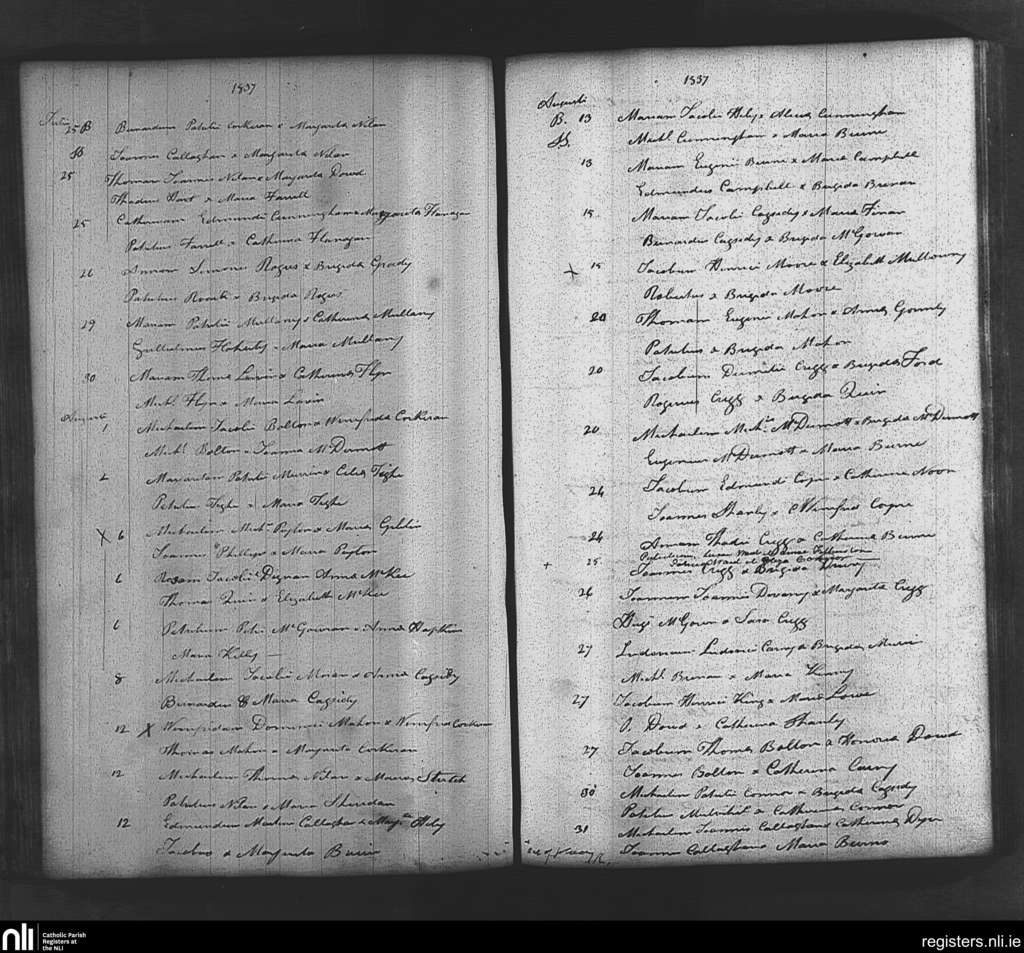 1837
25 B Bernardum Patritii Corkeran & Margarita Nolan
B Joannes Callaghan & Margarita Nolan
25 Thomam Joannis Nolan & Margarita Dowd
Thadeus & Maria Farrell
25 Catherinam Edmundi Cunningham & Margarita Flanagan
Patritius Farrell & Catherina Flanagan
26 Annam Simonis Rogers & Brigida Grady
Patritius & Brigida Rogers
29 Mariam Patritii Mullany & Catherina Mullany
Gullielmus & Maria Mullany
30 Mariam Thoma Lavin & Catherina Flyn
Michl Flyn & Maria Lavin
Augusti 1 Michaelem Jacobi Bolton & Winnifrida Corkeran
Michl Bolton & Joanna McDermott
2 Margaritam Patritii & Celia Tighe
Patritius Tighe & Maria Tighe
X 6 Michaelem Michl Peyton & Maria
Joannes Phillips & Maria Peyton
6 Rosam Jacobi Degnan Anna McKee
Thomas Quin & Elizabeth McKee
6 Patritium Petri McGowran & Anna
Maria Kelly —
8 Michaelem Jacobi Moran & Anna Cassidy
Bernardus & Maria Cassidy
12 X Winnifridam Dominici Mahon & Winnifrid Corkeran
Thomas Mahon & Margarita Corkeran
12 Michaelem Thoma Nolan & Maria
Patritius Nolan & Maria Sheridan
12 Edmundum Martini Callaghan & Margta Healy
Jacobus & Margarita
1837
Augusti
B. 13 Mariam Jacobi Healy & Alicia Cunningham
B. Michl Cunningham & Maria Burne
13 Mariam Eugenii Burne & Maria Campbell
Edmundus Campbell & Brigida Brenan
15 Mariam Jacobi Cassidy & Maria Finan
Bernardus Cassidy & Brigida McGowan
+ 15 Jacobum Henrici Moore & Elizabeth Mulloway
Robertus & Brigida Moore
20 Thomam Eugenii Mahon & Anna Gormly
Patritius & Brigida Mahon
20 Jacobum Dermitii Cregg & Brigida Ford
Rogerius Cregg & Brigida Quin
20 Michaelem Michls McDermott & Brigida McDermott
Eugenius McDermott & Maria Burne
24 Jacobum Edmundi Coyne & Catherina Noon
Joannes Shanly & Winnifrid Coyne
24 Annam Thadei Cregg & Catherina Burne
+ 25. Patritium Ward
Ward et
Joannes Cregg & Brigida Drury
26 Joannem Joannis & Margarita Cregg
McGowan & Sara Cregg
27 Ludovicum Ludovici Carny & Brigida
Michl Brenan & Maria Kenny
27 Jacobum Henrici King & Maria Lowe
Dowd & Catherina Shanly
27 Jacobum Thoma Bolton & Honoria Dowd
Joannes Bolton & Catherina Carny
30 Michaelem Patritii Connor & Brigida Cassidy
Patritius & Catherina Connor
31 Michaelem Joannis Callaghan & Catherina Dyer
Joannes Callaghan & Maria Burns
nli Catholic Parish
Registers at
the NLI
registers.nli.ie